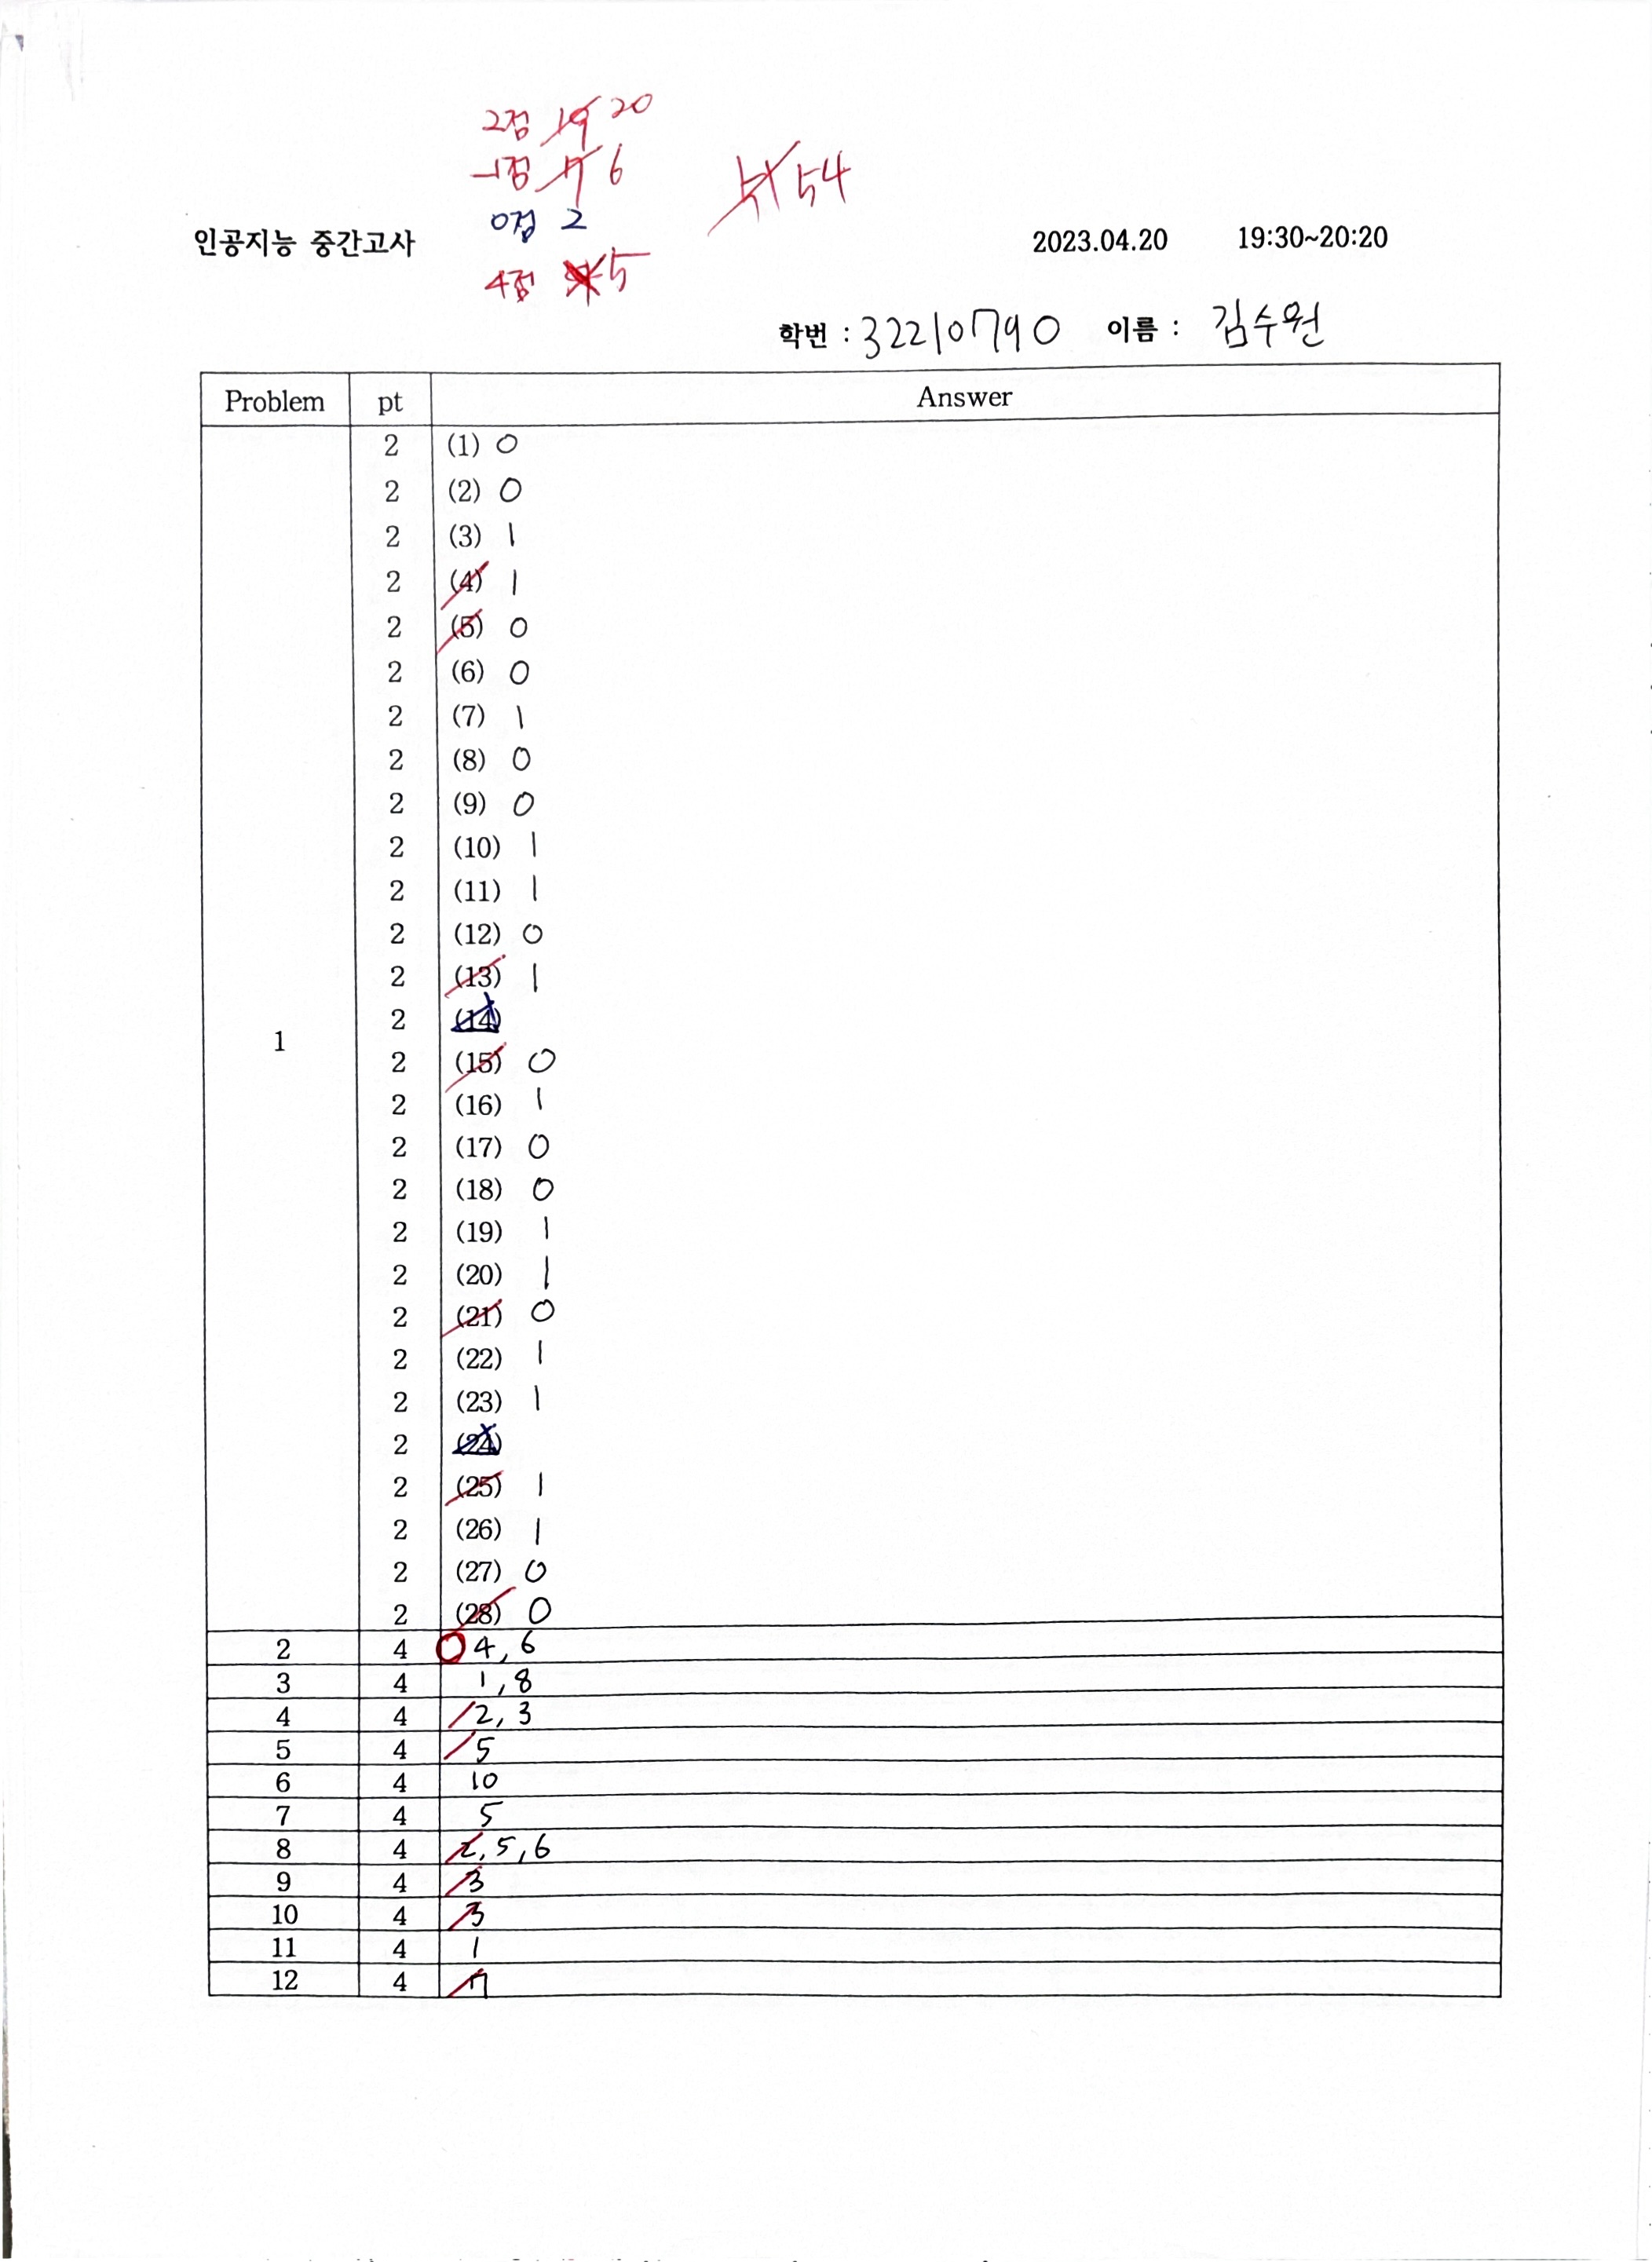 2점 19 20
-1점 7 6
0점 2
4점 5
51 54
인공지능 중간고사 2023.04.20 19:30~20:20
학번 : 32210790 이름 : 김수원
Problem pt Answer
1
2 (1) 0
2 (2) 0
2 (3) 1
2 (4) 1
2 (5) 0
2 (6) 0
2 (7) 1
2 (8) 0
2 (9) 0
2 (10) 1
2 (11) 1
2 (12) 0
2 (13) 1
2 (14)
2 (15) 0
2 (16) 1
2 (17) 0
2 (18) 0
2 (19) 1
2 (20) 1
2 (21) 0
2 (22) 1
2 (23) 1
2 (24)
2 (25) 1
2 (26) 1
2 (27) 0
2 (28) 0
2 4 4, 6
3 4 1, 8
4 4 2, 3
5 4 5
6 4 10
7 4 5
8 4 2, 5, 6
9 4 3
10 4 3
11 4 1
12 4 7